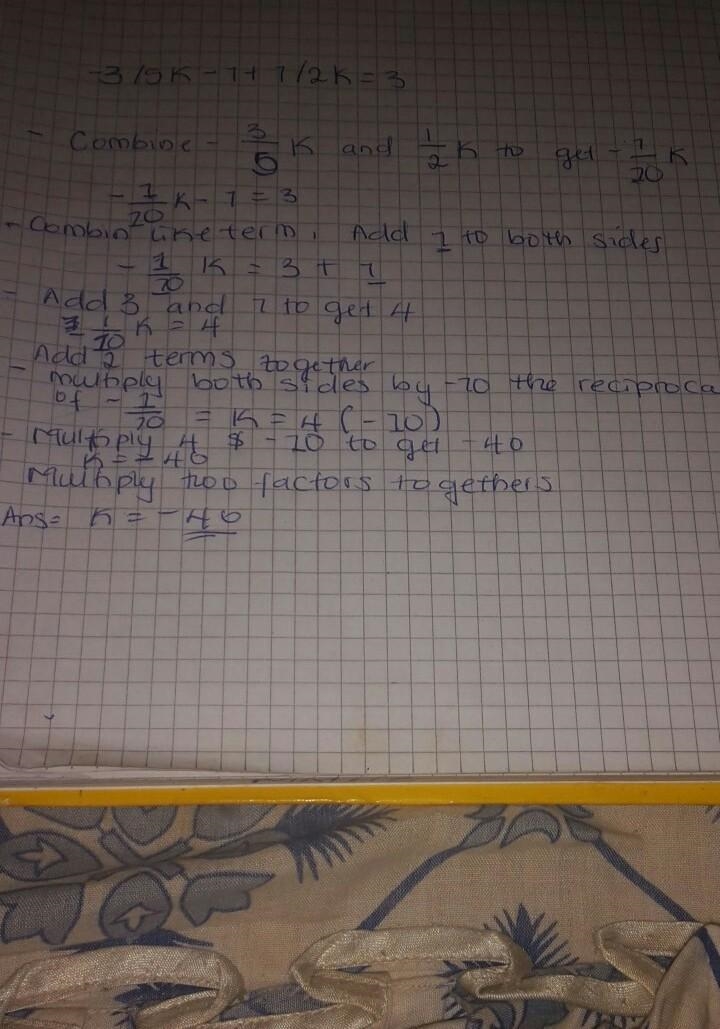 -3/5K - 1 + 1/2K = 3
- Combine - 3/5 K and 1/2 K to get - 1/10 K
- 1/10 K - 1 = 3
- Combin like term, Add 1 to both sides
- 1/10 K = 3 + 1
- Add 3 and 1 to get 4
- 1/10 K = 4
- Add 2 terms together
- Multiply both sides by -10 the reciproca
of - 1/10 = K = 4 (-10)
- Multiply 4 $ -10 to get -40
K = -40
Multiply two factors togethers
Ans= K = -40